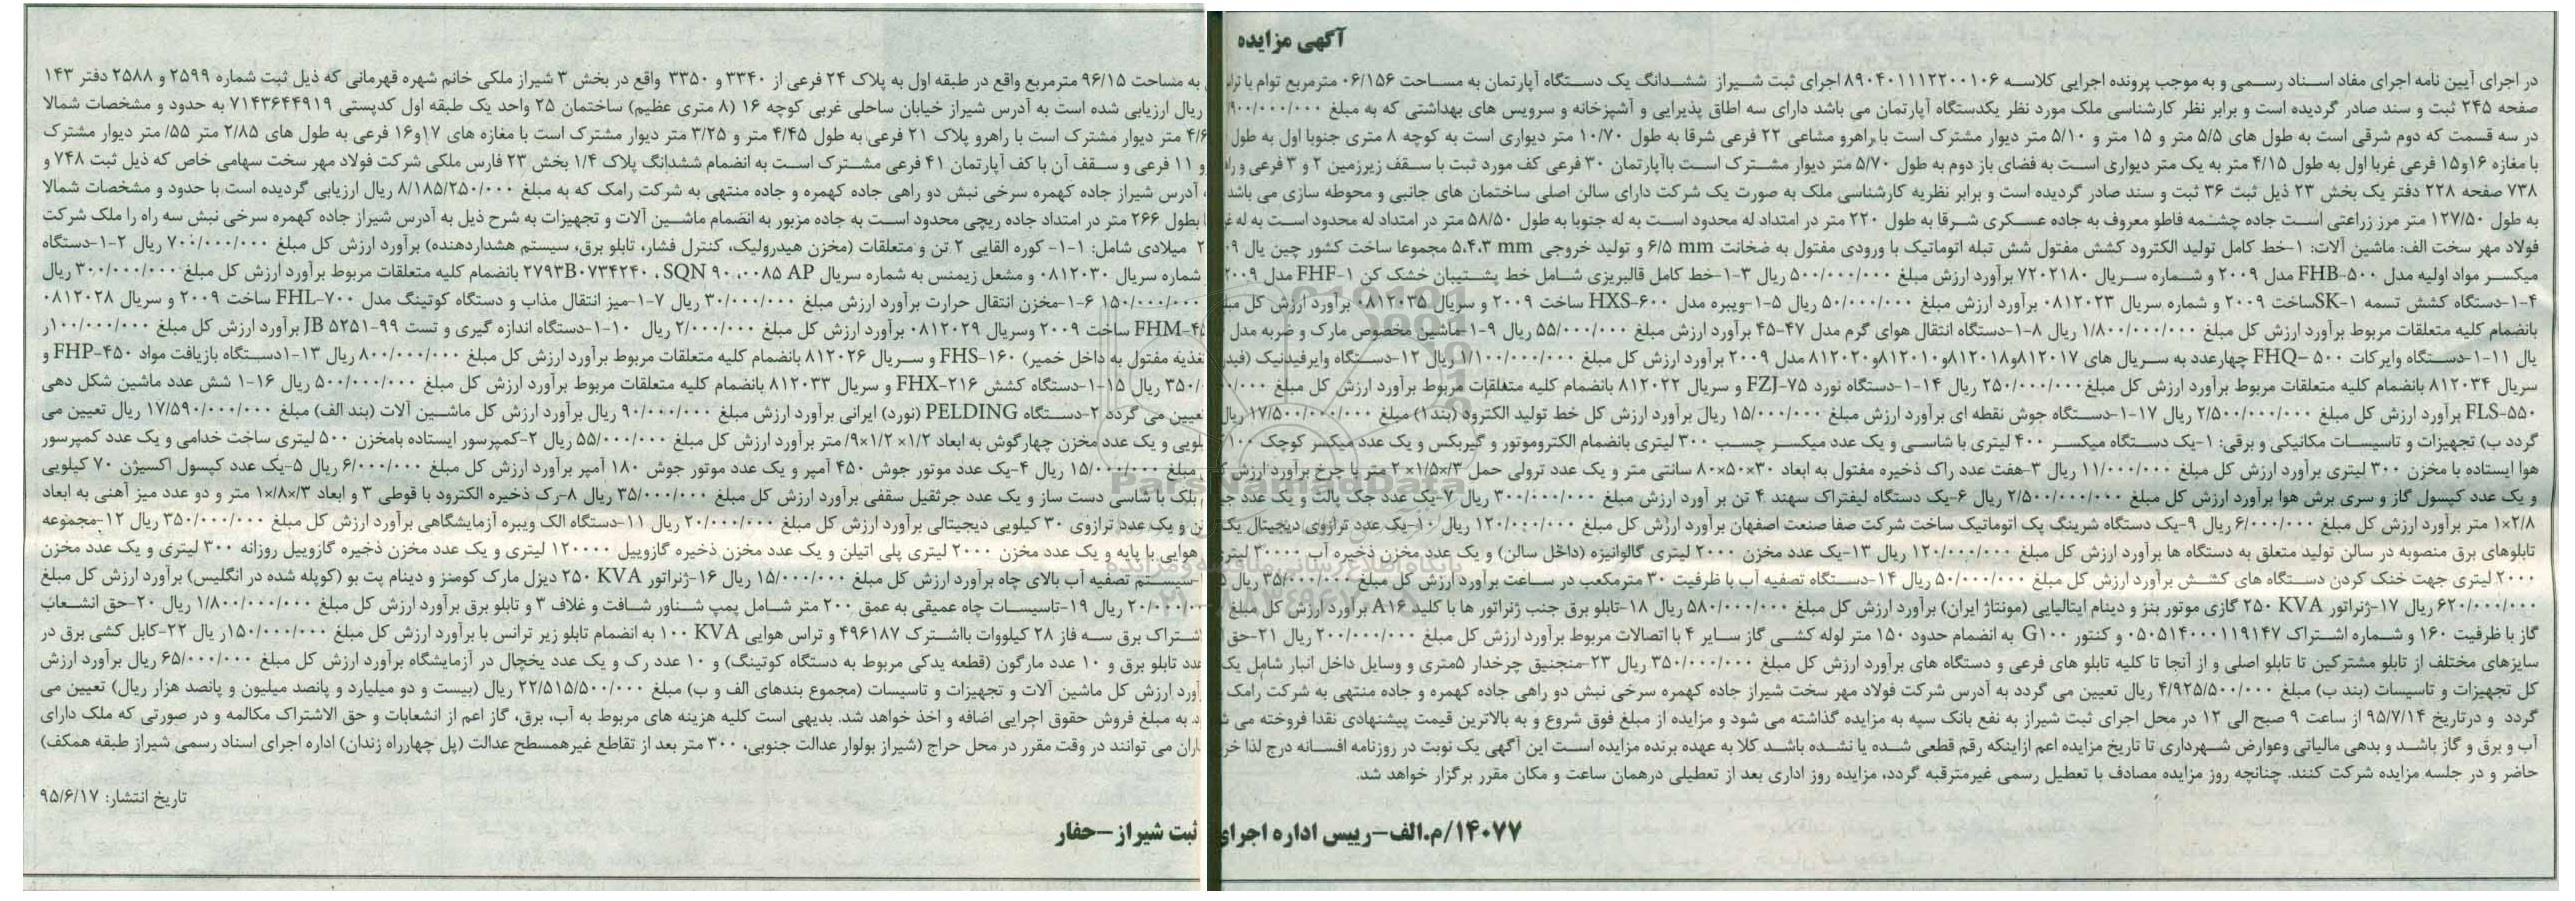 آگهی مزایده
در اجرای آیین نامه اجرای مفاد اسناد رسمی و به موجب پرونده اجرایی کلاسه ۸۹۰۴۰۱۱۱۲۲۰۰۱۰۶ اجرای ثبت شیراز ششدانگ یک دستگاه آپارتمان به مساحت ۰۶/۱۵۶ مترمربع توام با به مساحت ۹۶/۱۵ مترمربع واقع در طبقه اول به پلاک ۲۴ فرعی از ۳۳۴۰ و ۳۳۵۰ واقع در بخش ۳ شیراز ملکی خانم شهره قهرمانی که ذیل ثبت شماره ۲۵۹۹ و ۲۵۸۸ دفتر ۱۴۳
صفحه ۲۴۵ ثبت و سند صادر گردیده است و برابر نظر کارشناسی ملک مورد نظر یکدستگاه آپارتمان می باشد دارای سه اطاق پذیرایی و آشپزخانه و سرویس های بهداشتی که به مبلغ ریال ارزیابی شده است به آدرس شیراز خیابان ساحلی غربی کوچه ۱۶ (۸ متری عظیم) ساختمان ۲۵ واحد یک طبقه اول کدپستی ۷۱۴۳۶۴۴۹۱۹ به حدود و مشخصات شمالا
در سه قسمت که دوم شرقی است به طول های ۵/۵ متر و ۱۵ متر و ۵/۱۰ متر دیوار مشترک است با راهرو مشاعی ۲۲ فرعی شرقا به طول ۱۰/۷۰ متر دیواری است به کوچه ۸ متری جنوبا اول به طول ۴/۶ متر دیوار مشترک است با راهرو پلاک ۲۱ فرعی به طول ۴/۴۵ متر و ۳/۲۵ متر دیوار مشترک است با مغازه های ۱۷و۱۶ فرعی به طول های ۲/۸۵ متر ۵۵/ متر دیوار مشترک
با مغازه ۱۶و۱۵ فرعی غربا اول به طول ۴/۱۵ متر به یک متر دیواری است به فضای باز دوم به طول ۵/۷۰ متر دیوار مشترک است باآپارتمان ۳۰ فرعی کف مورد ثبت با سقف زیرزمین ۲ و ۳ فرعی و و ۱۱ فرعی و سقف آن با کف آپارتمان ۴۱ فرعی مشترک است به انضمام ششدانگ پلاک ۱/۴ بخش ۲۳ فارس ملکی شرکت فولاد مهر سخت سهامی خاص که ذیل ثبت ۷۴۸ و
۷۳۸ صفحه ۲۲۸ دفتر یک بخش ۲۳ ذیل ثبت ۳۶ ثبت و سند صادر گردیده است و برابر نظریه کارشناسی ملک به صورت یک شرکت دارای سالن اصلی ساختمان های جانبی و محوطه سازی می باشد آدرس شیراز جاده کهمره سرخی نبش دو راهی جاده کهمره و جاده منتهی به شرکت رامک که به مبلغ ۸/۱۸۵/۲۵۰/۰۰۰ ریال ارزیابی گردیده است با حدود و مشخصات شمالا
به طول ۱۲۷/۵۰ متر مرز زراعتی است جاده چشمه فاطو معروف به جاده عسکری شرقا به طول ۲۲۰ متر در امتداد له محدود است به له جنوبا به طول ۵۸/۵۰ متر در امتداد له محدود است به له بطول ۲۶۶ متر در امتداد جاده ریچی محدود است به جاده مزبور به انضمام ماشین آلات و تجهیزات به شرح ذیل به آدرس شیراز جاده کهمره سرخی نبش سه راه را ملک شرکت
فولاد مهر سخت الف: ماشین آلات: ۱-خط کامل تولید الکترود کشش مفتول شش تبله اتوماتیک با ورودی مفتول به ضخانت ۶/۵ mm و تولید خروجی ۵،۴،۳ mm مجموعا ساخت کشور چین میلادی شامل: ۱-۱- کوره القایی ۲ تن و متعلقات (مخزن هیدرولیک، کنترل فشار، تابلو برق، سیستم هشداردهنده) برآورد ارزش کل مبلغ ۷۰۰/۰۰۰/۰۰۰ ریال ۲-۱-دستگاه
میکسر مواد اولیه مدل FHB-۵۰۰ مدل ۲۰۰۹ و شماره سریال ۷۲۰۲۱۸۰ برآورد ارزش مبلغ ۵۰۰/۰۰۰/۰۰۰ ریال ۳-۱-خط کامل قالبریزی شامل خط پشتیبان خشک کن FHF-۱ مدل ۲۰۰۹ شماره سریال ۰۸۱۲۰۳۰ و مشعل زیمنس به شماره سریال ۰۰۸۵ AP، ۹۰ SQN، ۲۷۹۳B۰۷۳۴۲۴۰ بانضمام کلیه متعلقات مربوط برآورد ارزش کل مبلغ ۳۰۰/۰۰۰/۰۰۰ ریال
۴-۱-دستگاه کشش تسمه SK-۱ساخت ۲۰۰۹ و شماره سریال ۰۸۱۲۰۲۳ برآورد ارزش مبلغ ۵۰/۰۰۰/۰۰۰ ریال ۵-۱-ویبره مدل HXS-۶۰۰ ساخت ۲۰۰۹ و سریال ۰۸۱۲۰۳۵ برآورد ارزش کل ۱۵۰/۰۰۰/۰۰۰ ۶-۱-مخزن انتقال حرارت برآورد ارزش مبلغ ۳۰/۰۰۰/۰۰۰ ریال ۷-۱-میز انتقال مذاب و دستگاه کوتینگ مدل FHL-۷۰۰ ساخت ۲۰۰۹ و سریال ۰۸۱۲۰۲۸
بانضمام کلیه متعلقات مربوط برآورد ارزش کل مبلغ ۱/۸۰۰/۰۰۰/۰۰۰ ریال ۸-۱-دستگاه انتقال هوای گرم مدل ۴۷-۴۵ برآورد ارزش مبلغ ۵۵/۰۰۰/۰۰۰ ریال ۹-۱-ماشین مخصوص مارک و ضربه مدل FHM-۴۵ ساخت ۲۰۰۹ وسریال ۰۸۱۲۰۲۹ برآورد ارزش کل مبلغ ۲/۰۰۰/۰۰۰ ریال ۱۰-۱-دستگاه اندازه گیری و تست JB ۵۲۵۱-۹۹ برآورد ارزش کل مبلغ ۱۰۰/۰۰۰/۰۰۰ر
یال ۱۱-۱-دستگاه وایرکات FHQ-۵۰۰ چهارعدد به سریال های ۸۱۲۰۱۷و۸۱۲۰۱۸و۸۱۲۰۱۰و۸۱۲۰۲۰ مدل ۲۰۰۹ برآورد ارزش کل مبلغ ۱/۱۰۰/۰۰۰/۰۰۰ ریال ۱۲-دستگاه وایرفیدنیک تغذیه مفتول به داخل خمیر) FHS-۱۶۰ و سریال ۸۱۲۰۲۶ بانضمام کلیه متعلقات مربوط برآورد ارزش کل مبلغ ۸۰۰/۰۰۰/۰۰۰ ریال ۱۳-۱دستگاه بازیافت مواد FHP-۴۵۰ و
سریال ۸۱۲۰۳۴ بانضمام کلیه متعلقات مربوط برآورد ارزش کل مبلغ۲۵۰/۰۰۰/۰۰۰ ریال ۱۴-۱-دستگاه نورد FZJ-۷۵ و سریال ۸۱۲۰۲۲ بانضمام کلیه متعلقات مربوط برآورد ارزش کل مبلغ ریال ۱۵-۱-دستگاه کشش FHX-۲۱۶ و سریال ۸۱۲۰۳۳ بانضمام کلیه متعلقات مربوط برآورد ارزش کل مبلغ ۵۰۰/۰۰۰/۰۰۰ ریال ۱۶-۱ شش عدد ماشین شکل دهی
FLS-۵۵۰ برآورد ارزش کل مبلغ ۲/۵۰۰/۰۰۰/۰۰۰ ریال ۱۷-۱-دستگاه جوش نقطه ای برآورد ارزش مبلغ ۱۵/۰۰۰/۰۰۰ ریال برآورد ارزش کل خط تولید الکترود (بند۱) مبلغ ۱۷/۵۰۰/۰۰۰/۰۰۰ ریال تعیین می گردد ۲-دستگاه PELDING (نورد) ایرانی برآورد ارزش مبلغ ۹۰/۰۰۰/۰۰۰ ریال برآورد ارزش کل ماشین آلات (بند الف) مبلغ ۱۷/۵۹۰/۰۰۰/۰۰۰ ریال تعیین می
گردد ب) تجهیزات و تاسیسات مکانیکی و برقی: ۱-یک دستگاه میکسر ۴۰۰ لیتری با شاسی و یک عدد میکسر چسب ۳۰۰ لیتری بانضمام الکتروموتور و گیربکس و یک عدد میکسر کوچک ۱۰۰ کیلویی و یک عدد مخزن چهارگوش به ابعاد ۱/۲×۱/۲×۹/ متر برآورد ارزش کل مبلغ ۵۵/۰۰۰/۰۰۰ ریال ۲-کمپرسور ایستاده بامخزن ۵۰۰ لیتری ساخت خدامی و یک عدد کمپرسور
هوا ایستاده با مخزن ۳۰۰ لیتری برآورد ارزش کل مبلغ ۱۱/۰۰۰/۰۰۰ ریال ۳-هفت عدد راک ذخیره مفتول به ابعاد ۳۰×۵۰×۸۰ سانتی متر و یک عدد ترولی حمل ۳/×۱/۵×۲ متر با چرخ برآورد ارزش مبلغ ۱۵/۰۰۰/۰۰۰ ریال ۴-یک عدد موتور جوش ۴۵۰ آمپر و یک عدد موتور جوش ۱۸۰ آمپر برآورد ارزش کل مبلغ ۶/۰۰۰/۰۰۰ ریال ۵-یک عدد کپسول اکسیژن ۷۰ کیلویی
و یک عدد کپسول گاز و سری برش هوا برآورد ارزش کل مبلغ ۲/۵۰۰/۰۰۰ ریال ۶-یک دستگاه لیفتراک سهند ۴ تن بر آورد ارزش مبلغ ۳۰۰/۰۰۰/۰۰۰ ریال ۷-یک عدد جک پالت و یک عدد بلک با شاسی دست ساز و یک عدد جرثقیل سقفی برآورد ارزش کل مبلغ ۳۵/۰۰۰/۰۰۰ ریال ۸-رک ذخیره الکترود با قوطی ۳ و ابعاد ۳/×۸/×۱ متر و دو عدد میز آهنی به ابعاد
۱×۲/۸ متر برآورد ارزش کل مبلغ ۶/۰۰۰/۰۰۰ ریال ۹-یک دستگاه شرینگ پک اتوماتیک ساخت شرکت صفا صنعت اصفهان برآورد ارزش کل مبلغ ۱۲۰/۰۰۰/۰۰۰ ریال ۱۰-یک عدد ترازوی دیجیتال یک تن و یک عدد ترازوی ۳۰ کیلویی دیجیتالی برآورد ارزش کل مبلغ ۲۰/۰۰۰/۰۰۰ ریال ۱۱-دستگاه الک ویبره آزمایشگاهی برآورد ارزش کل مبلغ ۳۵۰/۰۰۰/۰۰۰ ریال ۱۲-مجموعه
تابلوهای برق منصوبه در سالن تولید متعلق به دستگاه ها برآورد ارزش کل مبلغ ۱۲۰/۰۰۰/۰۰۰ ریال ۱۳-یک عدد مخزن ۲۰۰۰ لیتری گالوانیزه (داخل سالن) و یک عدد مخزن ذخیره آب ۳۰۰۰۰ لیتری هوایی با پایه و یک عدد مخزن ۲۰۰۰ لیتری پلی اتیلن و یک عدد مخزن ذخیره گازوییل ۱۲۰۰۰۰ لیتری و یک عدد مخزن ذخیره گازوییل روزانه ۳۰۰ لیتری و یک عدد مخزن
۲۰۰۰ لیتری جهت خنک کردن دستگاه های کشش برآورد ارزش کل مبلغ ۵۰/۰۰۰/۰۰۰ ریال ۱۴-دستگاه تصفیه آب با ظرفیت ۳۰ مترمکعب در ساعت برآورد ارزش کل مبلغ ۳۵/۰۰۰/۰۰۰ ریال سیستم تصفیه آب بالای چاه برآورد ارزش کل مبلغ ۱۵/۰۰۰/۰۰۰ ریال ۱۶-ژنراتور ۲۵۰ KVA دیزل مارک کومنز و دینام پت بو (کوپله شده در انگلیس) برآورد ارزش کل مبلغ
۶۲۰/۰۰۰/۰۰۰ ریال ۱۷-ژنراتور ۲۵۰ KVA گازی موتور بنز و دینام ایتالیایی (مونتاژ ایران) برآورد ارزش کل مبلغ ۵۸۰/۰۰۰/۰۰۰ ریال ۱۸-تابلو برق جنب ژنراتور ها با کلید A۱۶ برآورد ارزش کل مبلغ ۲۰/۰۰۰/۰۰۰ ریال ۱۹-تاسیسات چاه عمیقی به عمق ۲۰۰ متر شامل پمپ شناور شافت و غلاف ۳ و تابلو برق برآورد ارزش کل مبلغ ۱/۸۰۰/۰۰۰/۰۰۰ ریال ۲۰-حق انشعاب
گاز با ظرفیت ۱۶۰ و شماره اشتراک ۰۵۰۵۱۴۰۰۰۱۱۹۱۴۷ و کنتور G۱۰۰ به انضمام حدود ۱۵۰ متر لوله کشی گاز سایر ۴ با اتصالات مربوط برآورد ارزش کل مبلغ ۲۰۰/۰۰۰/۰۰۰ ریال ۲۱-حق اشتراک برق سه فاز ۲۸ کیلووات بااشترک ۴۹۶۱۸۷ و تراس هوایی ۱۰۰ KVA به انضمام تابلو زیر ترانس با برآورد ارزش کل مبلغ ۱۵۰/۰۰۰/۰۰۰ر یال ۲۲-کابل کشی برق در
سایزهای مختلف از تابلو مشترکین تا تابلو اصلی و از آنجا تا کلیه تابلو های فرعی و دستگاه های برآورد ارزش کل مبلغ ۳۵۰/۰۰۰/۰۰۰ ریال ۲۳-منجنیق چرخدار ۵متری و وسایل داخل انبار شامل یک عدد تابلو برق و ۱۰ عدد مارگون (قطعه یدکی مربوط به دستگاه کوتینگ) و ۱۰ عدد رک و یک عدد یخچال در آزمایشگاه برآورد ارزش کل مبلغ ۶۵/۰۰۰/۰۰۰ ریال برآورد ارزش
کل تجهیزات و تاسیسات (بند ب) مبلغ ۴/۹۲۵/۵۰۰/۰۰۰ ریال تعیین می گردد به آدرس شرکت فولاد مهر سخت شیراز جاده کهمره سرخی نبش دو راهی جاده کهمره و جاده منتهی به شرکت رامک برآورد ارزش کل ماشین آلات و تجهیزات و تاسیسات (مجموع بندهای الف و ب) مبلغ ۲۲/۵۱۵/۵۰۰/۰۰۰ ریال (بیست و دو میلیارد و پانصد میلیون و پانصد هزار ریال) تعیین می
گردد و درتاریخ ۹۵/۷/۱۴ از ساعت ۹ صبح الی ۱۲ در محل اجرای ثبت شیراز به نفع بانک سپه به مزایده گذاشته می شود و مزایده از مبلغ فوق شروع و به بالاترین قیمت پیشنهادی نقدا فروخته می به مبلغ فروش حقوق اجرایی اضافه و اخذ خواهد شد. بدیهی است کلیه هزینه های مربوط به آب، برق، گاز اعم از انشعابات و حق الاشتراک مکالمه و در صورتی که ملک دارای
آب و برق و گاز باشد و بدهی مالیاتی وعوارض شهرداری تا تاریخ مزایده اعم ازاینکه رقم قطعی شده یا نشده باشد کلا به عهده برنده مزایده است این آگهی یک نوبت در روزنامه افسانه درج لذا خریداران می توانند در وقت مقرر در محل حراج (شیراز بولوار عدالت جنوبی، ۳۰۰ متر بعد از تقاطع غیرهمسطح عدالت (پل چهارراه زندان) اداره اجرای اسناد رسمی شیراز طبقه همکف)
حاضر و در جلسه مزایده شرکت کنند. چنانچه روز مزایده مصادف با تعطیل رسمی غیرمترقبه گردد، مزایده روز اداری بعد از تعطیلی درهمان ساعت و مکان مقرر برگزار خواهد شد.
تاریخ انتشار: ۹۵/۶/۱۷
۱۴۰۷۷/م.الف-رییس اداره اجرای ثبت شیراز-حفار
ParsNamadData
پایگاه اطلاع رسانی مناقصه و مزایده